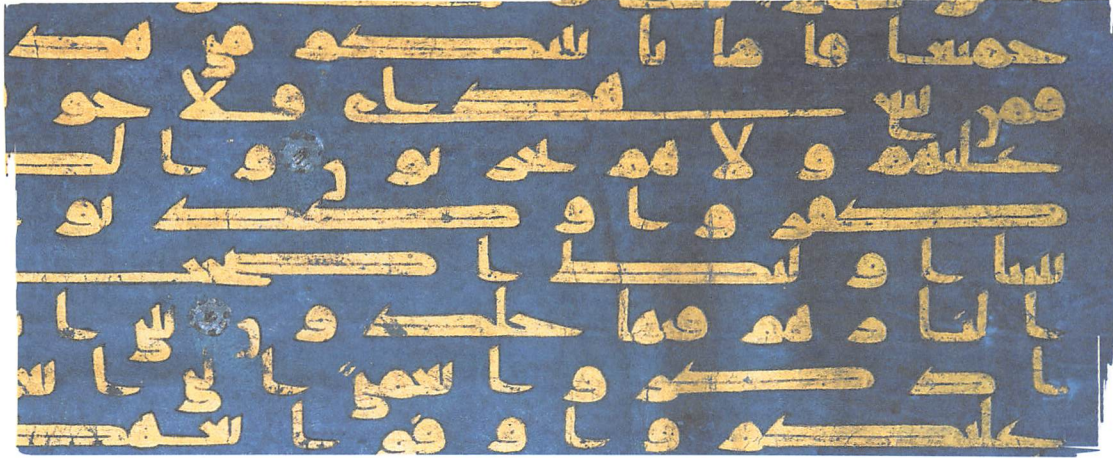 جميعا فاما ياتينكم مني هد
فمن تبع هداي فلا خو
عليهم ولا هم يحزنون والذ
كفروا وكذبو
يتنا اولئك اصحب
النار هم فيها خلدون يبني ا
اذكروا نعمتي التي انعـ
عليكم واوفوا بعهد